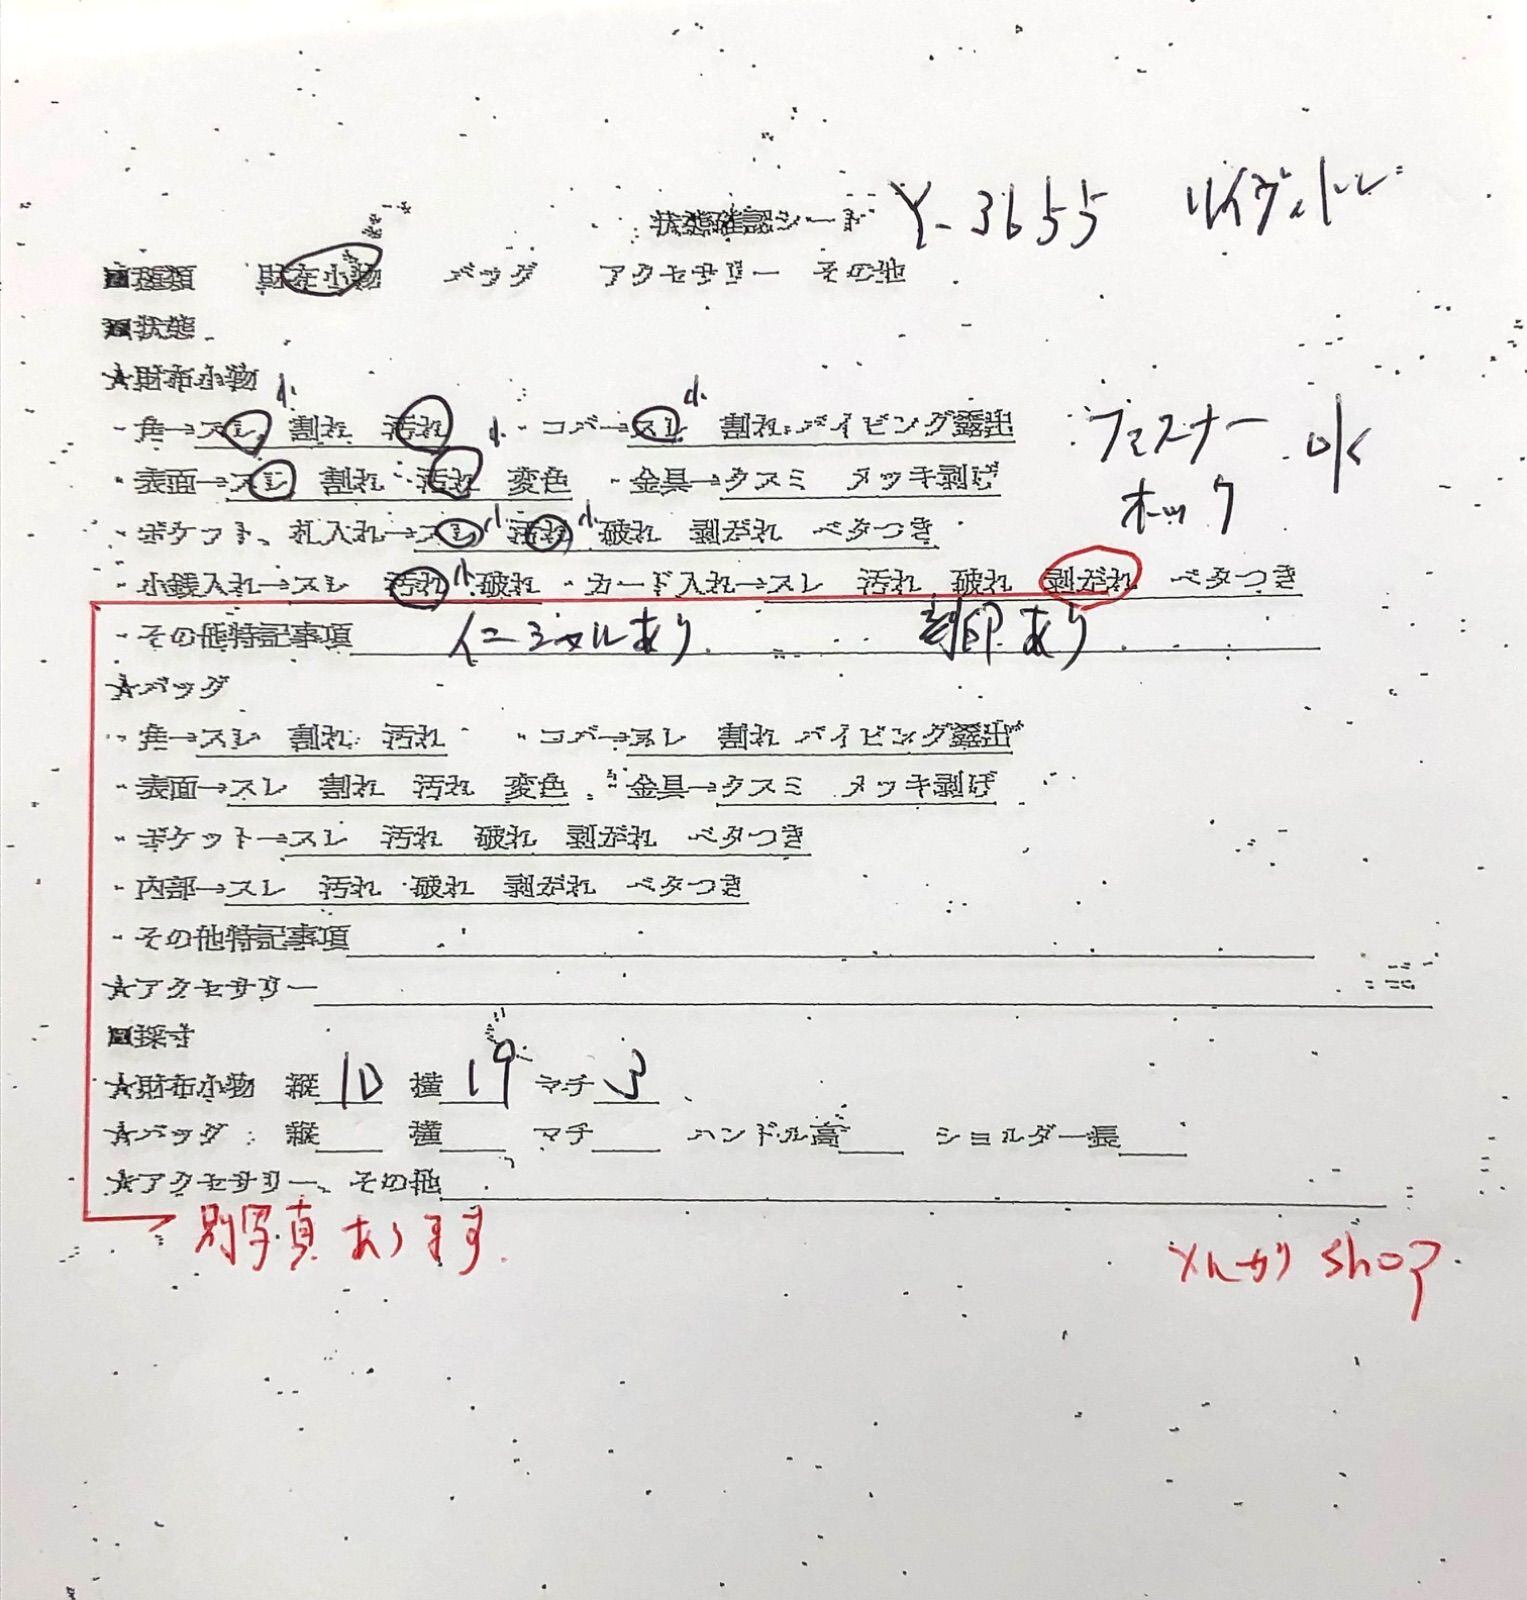 状態確認シート Y-3655 ルイヴィトン
■種類 財布小物 バッグ アクセサリー その他
■状態
★財布小物
・角→スレ 小 割れ 汚れ ・コバ→スレ 小 割れ パイピング露出 ファスナー
・表面→スレ 割れ 汚れ 小 変色 ・金具→クスミ メッキ剥げ ホック ok
・ポケット、札入れ→スレ 小 汚れ 小 破れ 剥がれ ベタつき
・小銭入れ→スレ 汚れ 小 破れ ・カード入れ→スレ 汚れ 破れ 剥がれ ベタつき
・その他特記事項 イニシャルあり 刻印あり
★バッグ
・角→スレ 割れ 汚れ ・コバ→スレ 割れ パイピング露出
・表面→スレ 割れ 汚れ 変色 ・金具→クスミ メッキ剥げ
・ポケット→スレ 汚れ 破れ 剥がれ ベタつき
・内部→スレ 汚れ 破れ 剥がれ ベタつき
・その他特記事項
★アクセサリー
■採寸
★財布小物 縦 10 横 19 マチ 3
★バッグ 縦 横 マチ ハンドル高 ショルダー長
★アクセサリー、その他
別写真あります
メルカリ shop